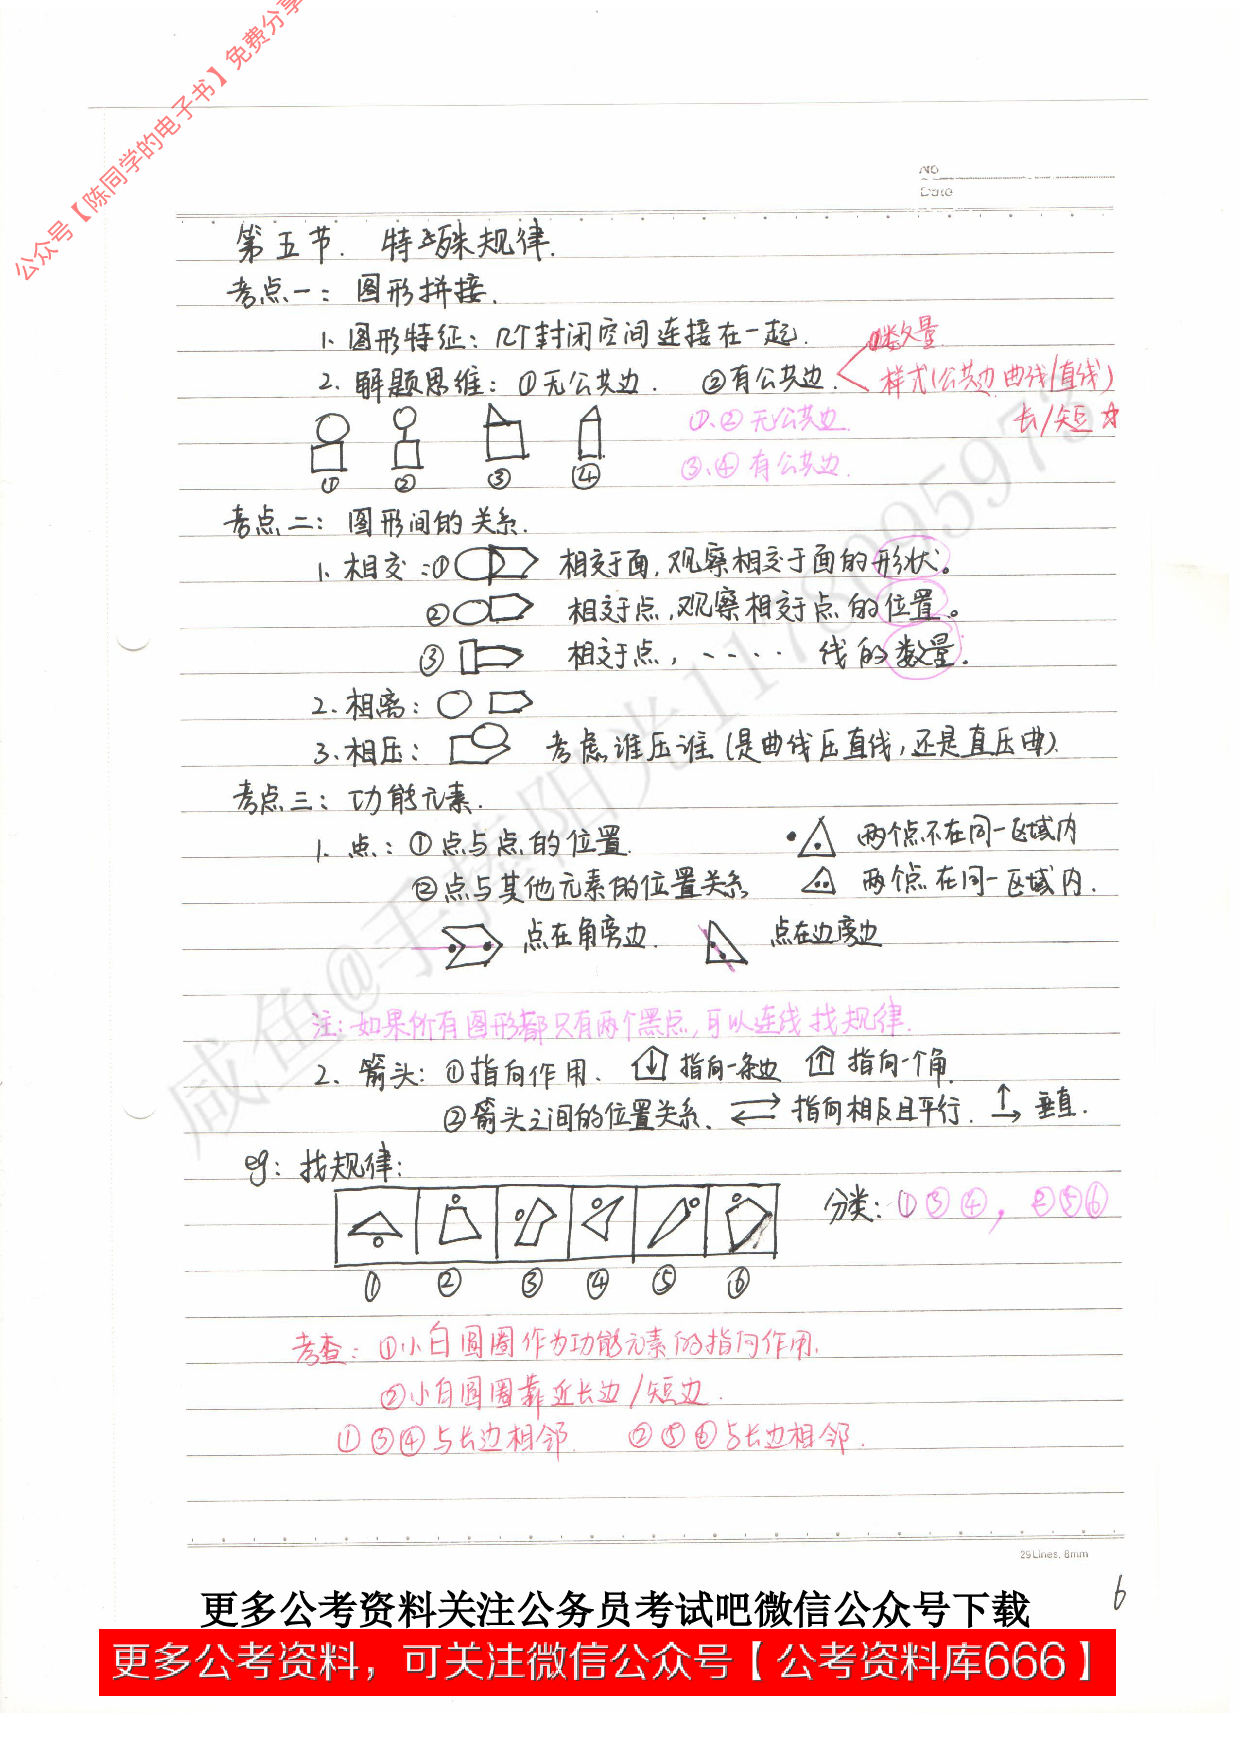 公众号【陈同学的电子书】免费分享
NO
Date
第五节. 特殊规律.
考点一: 图形拼接.
1. 图形特征: 几个封闭空间连接在一起.
①数量
2. 解题思维: ①无公共边. ②有公共边.
样式(公共边 曲线/直线)
长/短 ☆
①、②无公共边.
③、④有公共边.
① ② ③ ④
考点二: 图形间的关系.
1. 相交: ① 相交于面, 观察相交于面的形状。
② 相交于点, 观察相交于点的位置。
③ 相交于点, 、---- 线的数量.
2. 相离:
3. 相压: 考虑谁压谁 (是曲线压直线, 还是直压曲).
考点三: 功能元素.
1. 点: ①点与点的位置. 两个点不在同一区域内
②点与其他元素的位置关系 两个点在同一区域内.
点在角旁边. 点在边旁边
注: 如果所有图形都只有两个黑点, 可以连线找规律.
2. 箭头: ①指向作用. 指向一条边 指向一个角.
②箭头之间的位置关系、 指向相反且平行. 垂直.
eg: 找规律:
分类: ①③④, ②⑤⑥
① ② ③ ④ ⑤ ⑥
考查: ①小白圆圈作为功能元素的指向作用.
②小白圆圈靠近长边/短边.
①③④与长边相邻. ②⑤⑥与长边相邻.
29 Lines, 8mm
6
更多公考资料关注公务员考试吧微信公众号下载
更多公考资料，可关注微信公众号【公考资料库666】
咸鱼@手捧阳光1178095973